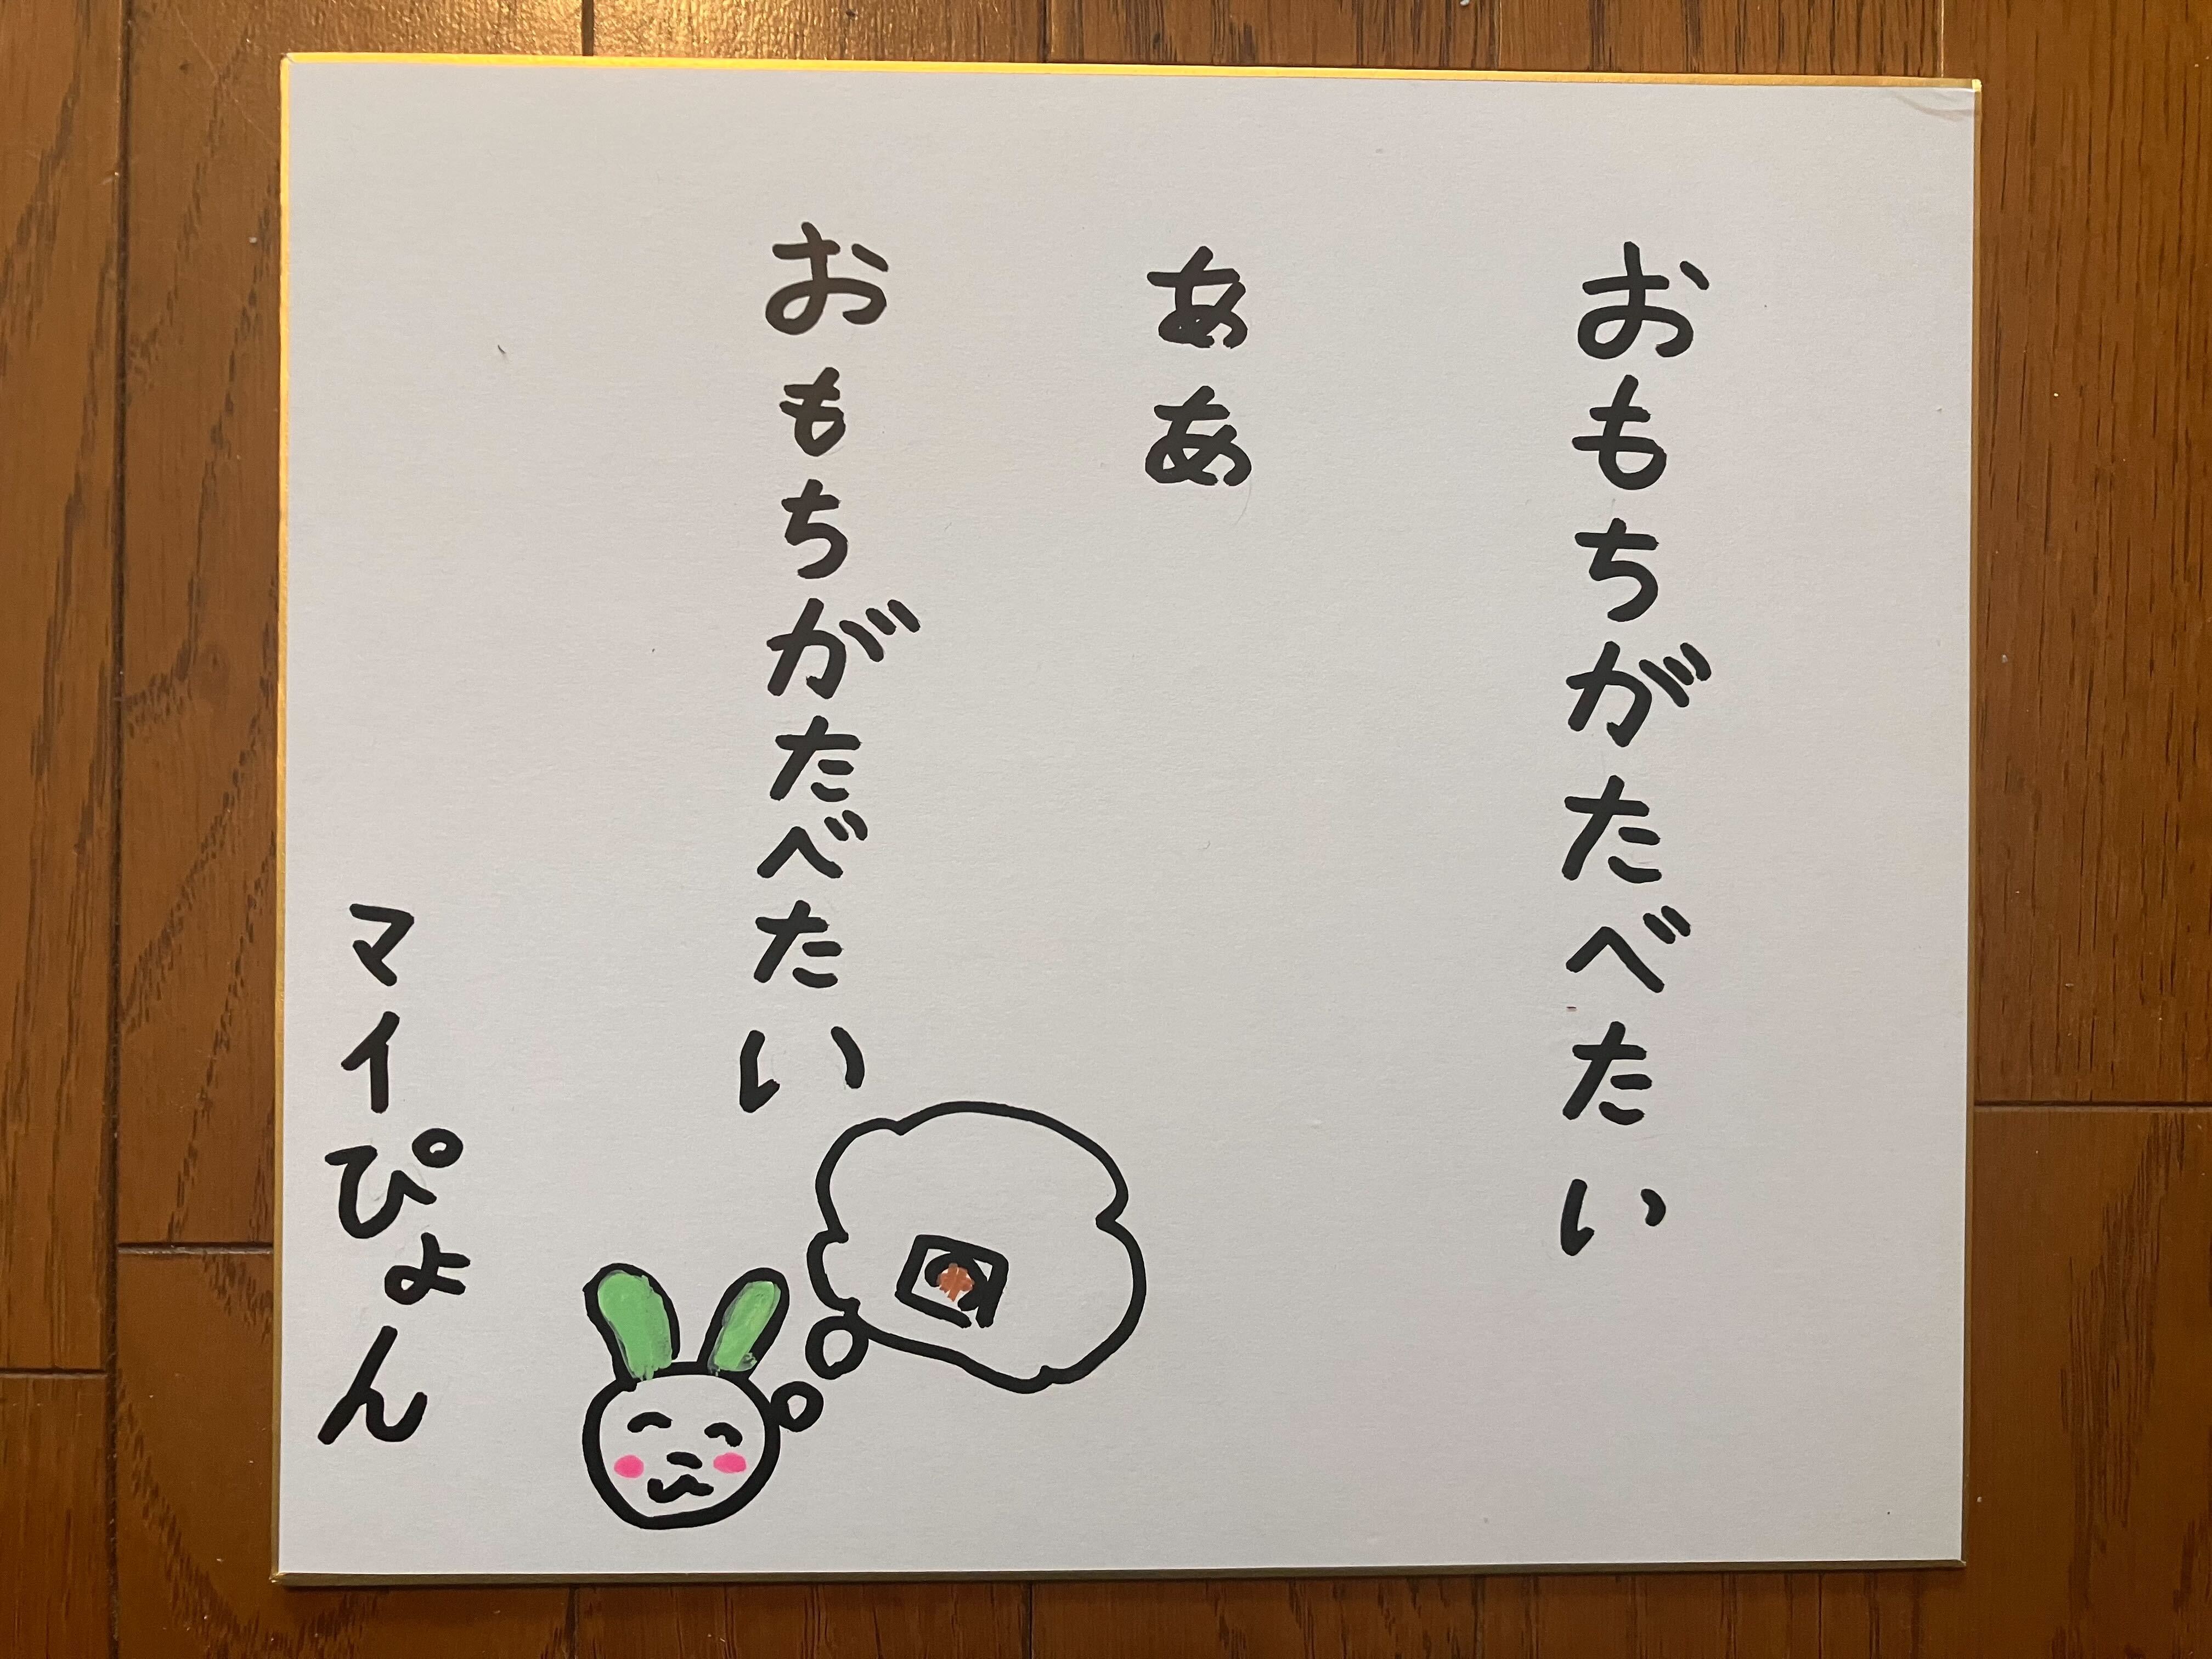 おもちがたべたい
ああ
おもちがたべたい
マイぴょん